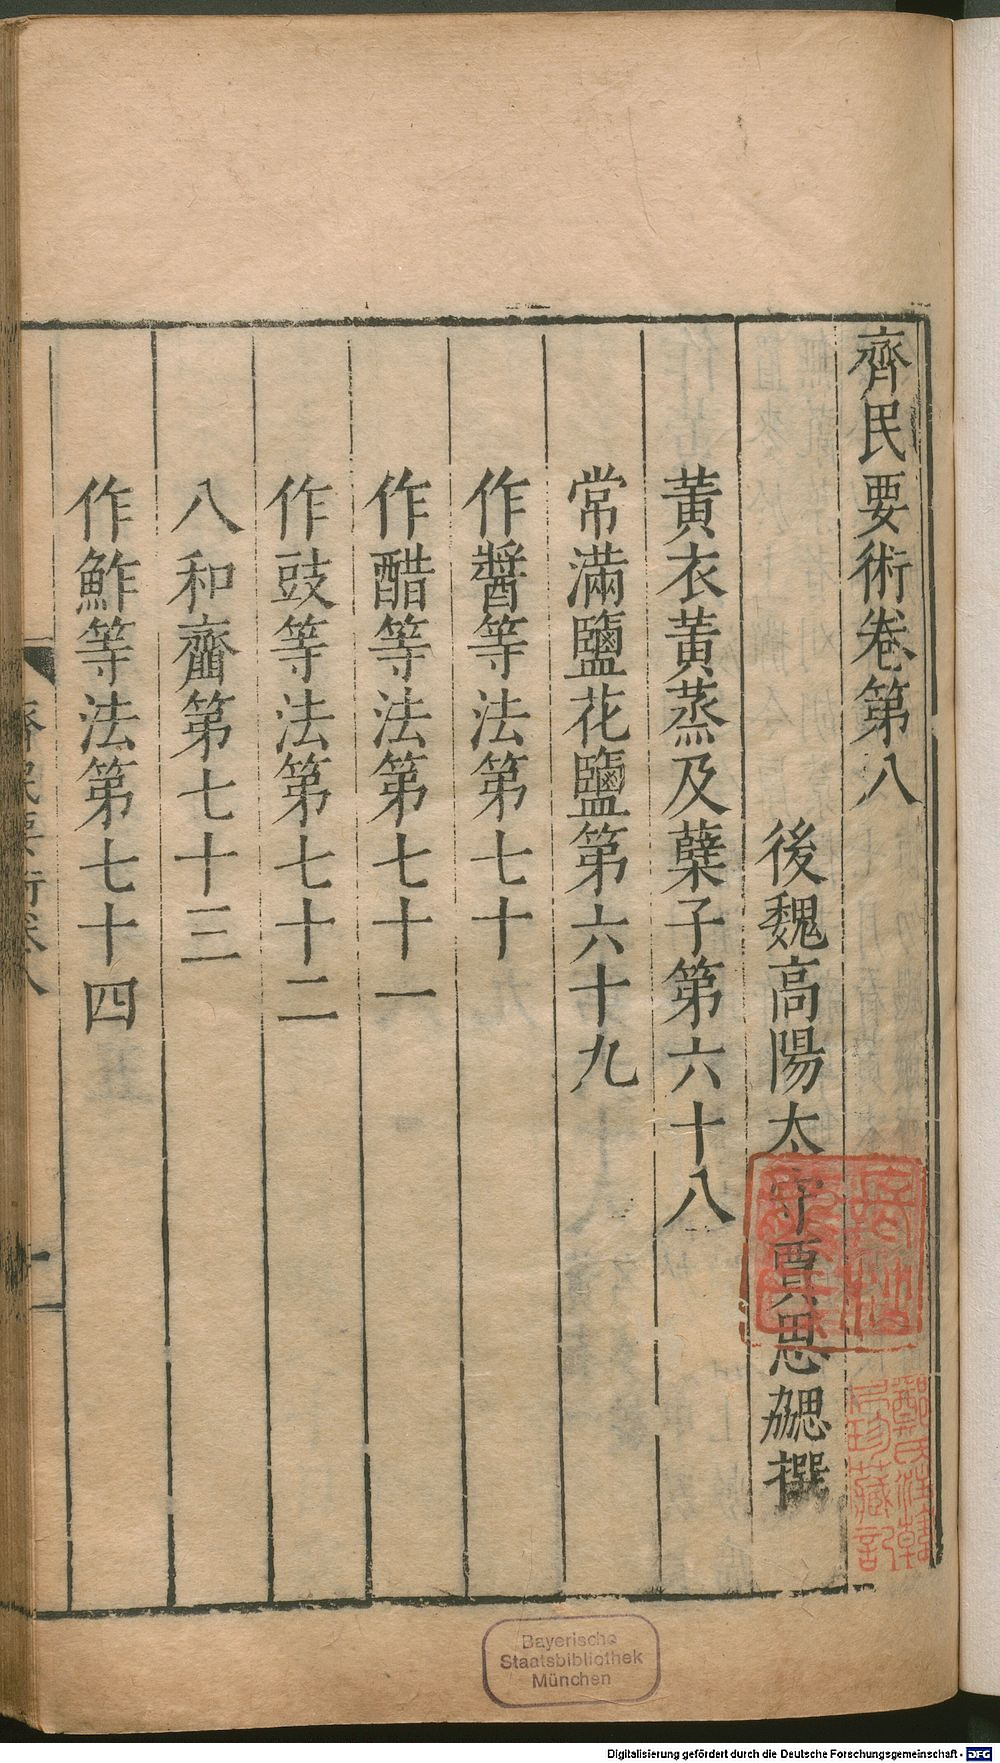 齊民要術卷第八
後魏高陽太守賈思勰撰
黃衣黃蒸及蘖子第六十八
常滿鹽花鹽第六十九
作醬等法第七十
作醋等法第七十一
作豉等法第七十二
八和齏第七十三
作鮓等法第七十四
齊民要術卷八
一
Bayerische
Staatsbibliothek
München
Digitalisierung gefördert durch die Deutsche Forschungsgemeinschaft - DFG